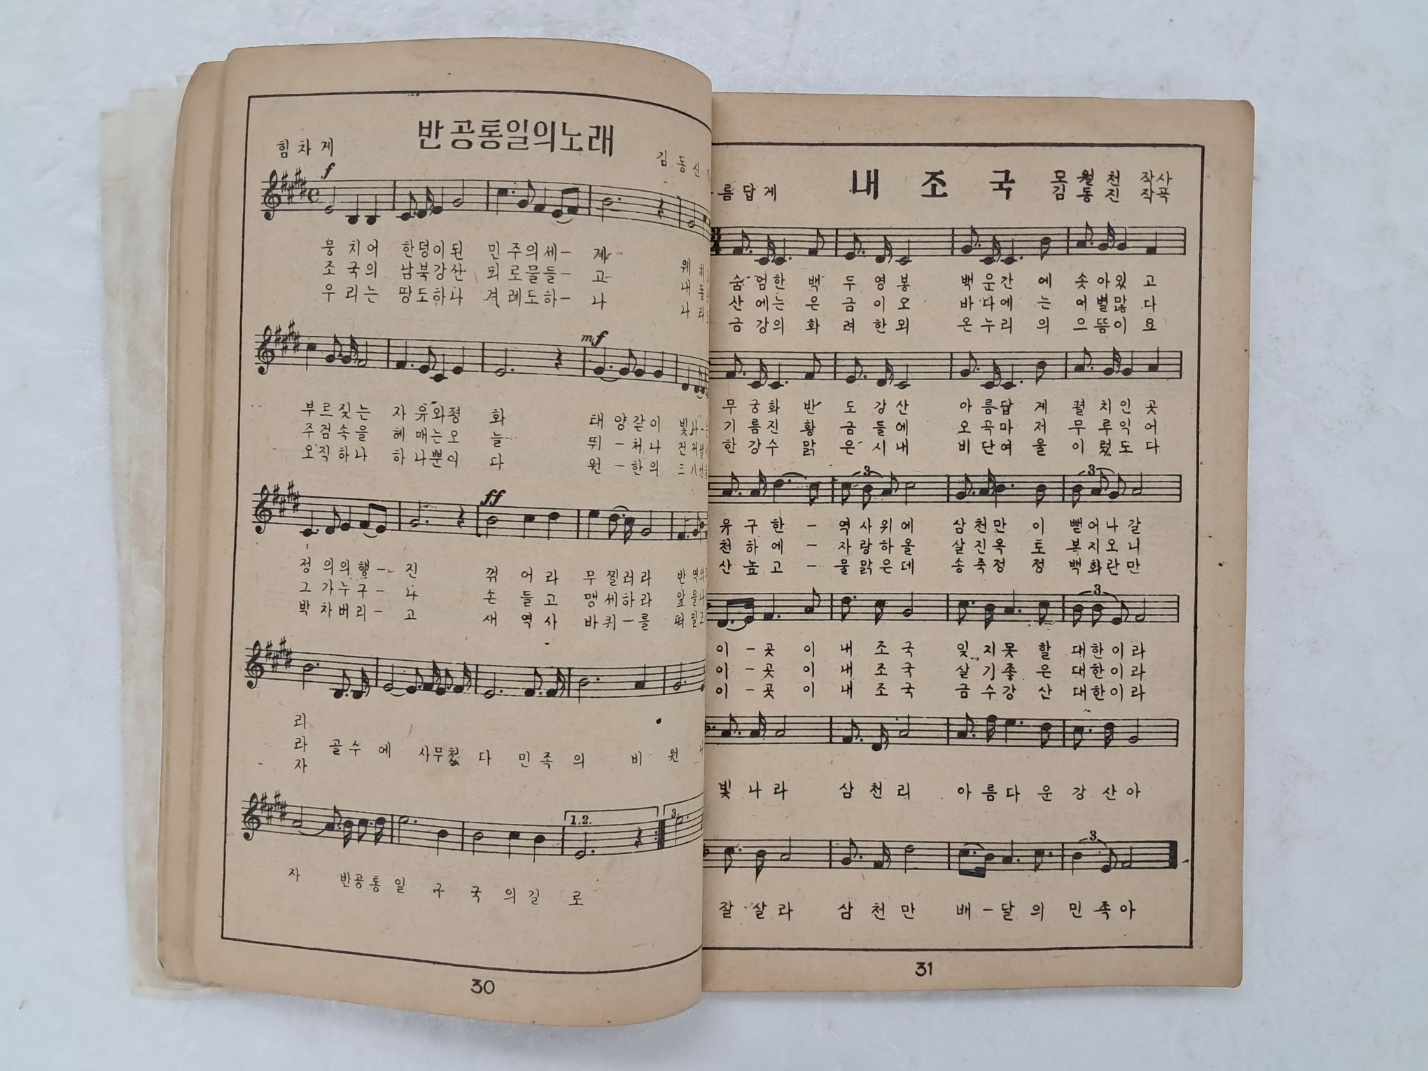 반공통일의노래
힘차게
김동신
f
뭉치어 한덩이된 민주의세— 계
조국의 남북강산 피로물들— 고
우리는 땅도하나 겨레도하— 나
mf
부르짖는 자유와평 화 태양같이
주검속을 헤매는오 늘 뛰—쳐나
오직하나 하나뿐이 다 원—한의
ff
정의의행— 진 꺾어라 무찔러라
그가누구— 나 손들고 맹세하라
박차버리— 고 새역사 바퀴—를
리
라 골수에 사무쳤다 민족의 비원
자
1.2.
3.
자 반공통일 구국의길로
30
름답게
내조국
모월천 작사
김동진 작곡
숨엄한 백두영봉 백운간에 솟아있고
산에는 은금이오 바다에는 어별많다
금강의 화려한외 온누리의 으뜸이요
무궁화 반도강산 아름답게 펼치인곳
기름진 황금들에 오곡마저 무루익어
한강수 맑은시내 비단여울 이렀도다
3
3
유구한— 역사위에 삼천만이 뻗어나갈
천하에— 자랑하올 살진옥토 복지오니
산높고— 물맑은데 송죽정정 백화란만
3
이—곳이 내조국 잊지못할 대한이라
이—곳이 내조국 살기좋은 대한이라
이—곳이 내조국 금수강산 대한이라
빛나라 삼천리 아름다운강산아
3
잘살라 삼천만 배—달의 민족아
31